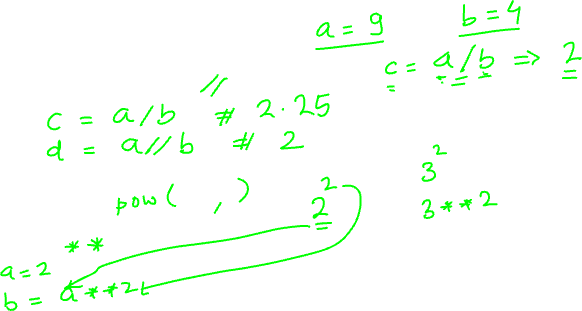 a = 9
b = 4
c = a/b => 2
//
c = a/b # 2.25
d = a//b # 2
pow( , )
2²
3²
3**2
**
a = 2
b = a**2